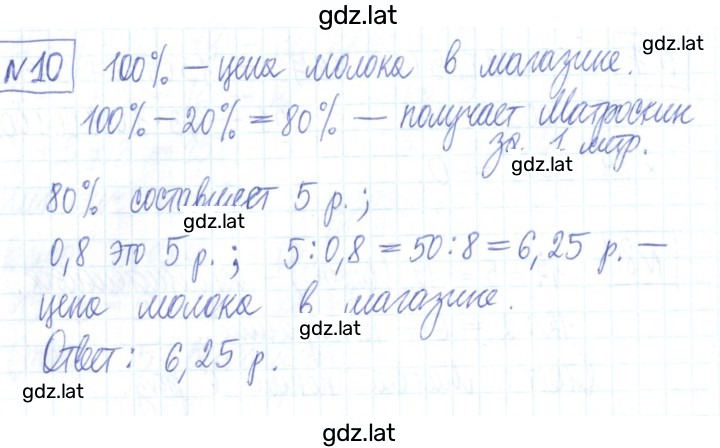 gdz.lat
gdz.lat
№10 100% — цена молока в магазине.
100% – 20% = 80% — получает Матроскин
за 1 литр.
gdz.lat
80% составляет 5 р.;
gdz.lat
0,8 это 5 р.; 5:0,8 = 50:8 = 6,25 р. —
цена молока в магазине.
gdz.lat
Ответ: 6,25 р.
gdz.lat
gdz.lat